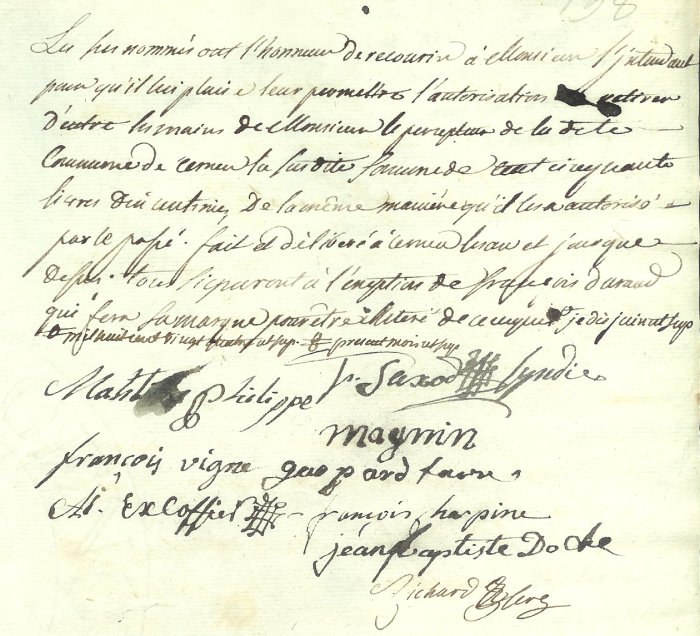 198
Les sus nommés ont l'honneur de recourir à Monsieur l'Intendant
pour qu'il lui plaise leur permettre l'autorisation de retirer
d'entre les mains de Monsieur le percepteur de la dete
Commune de cerneu la susdite somme de cent cinquante
livres dix centimes De la même manière qu'il les a autorisé
par le passé. fait et déliberé à cerneu les an et jour que
dessus. tous signeront à l'exeption de françois durand
qui fera sa marque pour être illiteré de ce enquis je dis juin
mil huit cent vingt present mois
Philippe P. Saxod Syndic
magnin
françois vigne gaspard favre
At. Excoffier françois harpine
jean Baptiste Doche
Richard